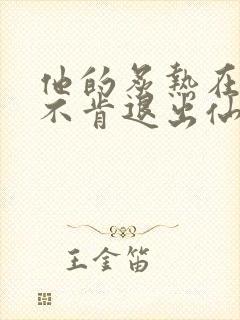 他的炙热在
不肯退出仙
王金笛